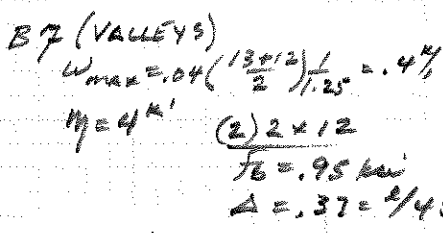 B7 (VALLEYS)
Wmax = .04(13+12/2)1/1.25 = .4 k/'
M = 4 k'
(2) 2 x 12
fb = .95 ksi
Δ = .37 = l/4